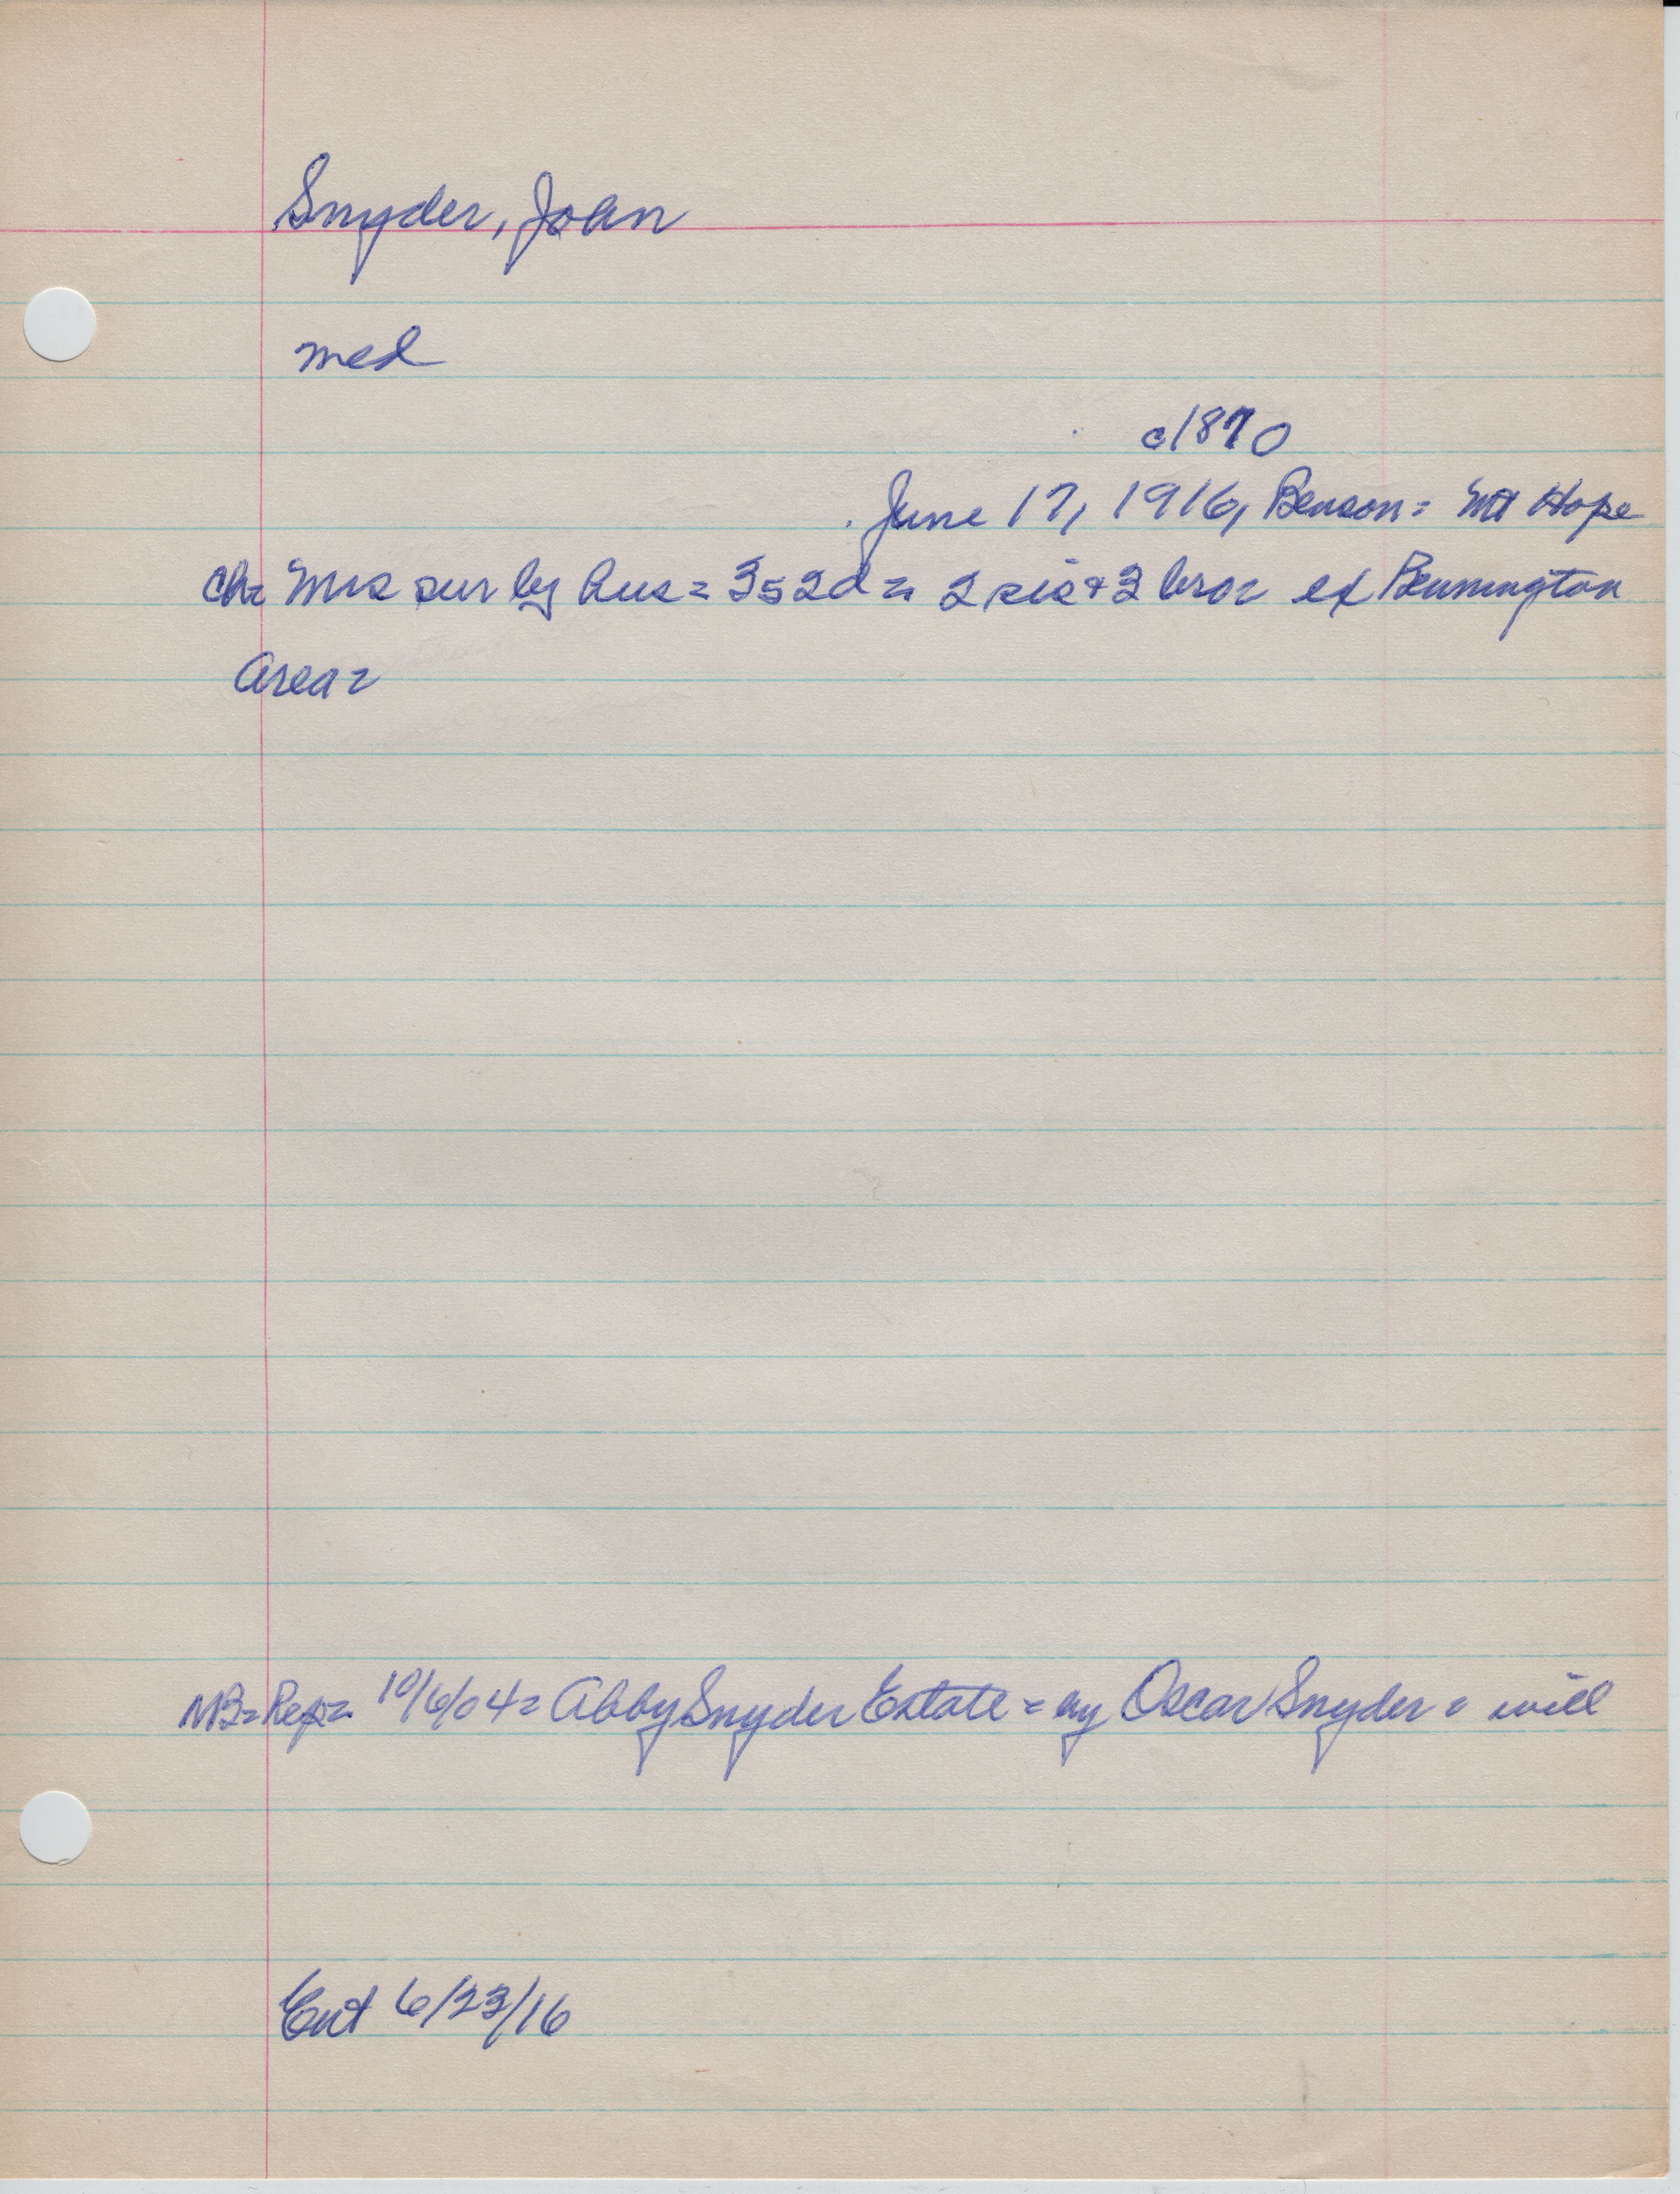 Snyder, John
med
c1870
June 17, 1916, Benson = Mt Hope
Ch = Mrs sur by hus = 3s 2d = 2 sis + 3 bro = of Bennington
area =
MB = Rep = 10/6/04 = Abby Snyder Estate = by Oscar Snyder = will
Ent 6/23/16